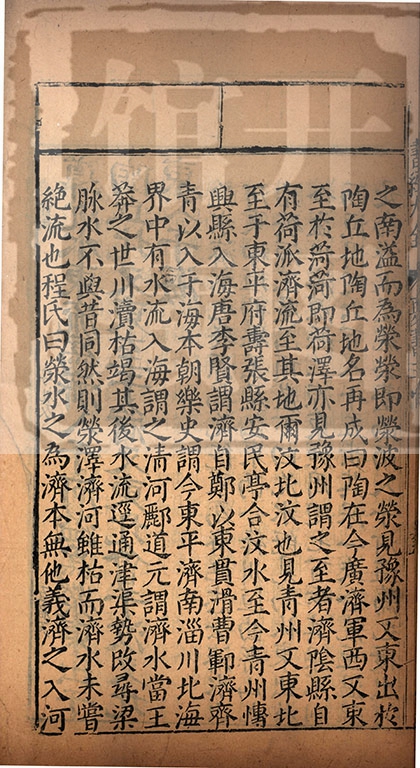 之南溢而為滎滎即滎波之滎見豫州又東出於
陶丘地陶丘地名再成曰陶在今廣濟軍西又東
至於荷荷即荷澤亦見豫州謂之至者濟陰縣自
有荷派濟流至其地爾汶北汶也見青州又東北
至于東平府壽張縣安民亭合汶水至今青州慱
興縣入海唐李賢謂濟自鄭以東貫滑曹鄆濟齊
青以入于海本朝樂史謂今東平濟南淄川北海
界中有水流入海謂之清河酈道元謂濟水當王
莽之世川瀆枯竭其後水流逕通津渠勢改尋梁
脉水不與昔同然則滎澤濟河雖枯而濟水未嘗
絶流也程氏曰滎水之為濟本無他義濟之入河